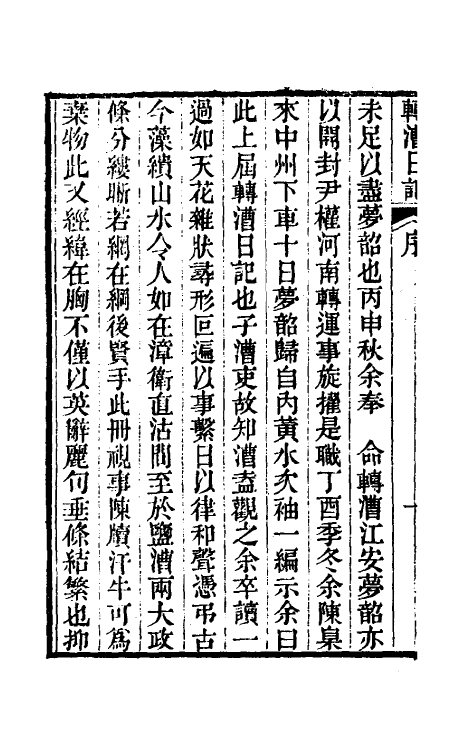 轉漕日記 序 一
未足以盡夢韶也丙申秋余奉 命轉漕江安夢韶亦
以開封尹權河南轉運事旋擢是職丁酉季冬余陳臬
來中州下車十日夢韶歸自內黃水次袖一編示余曰
此上屆轉漕日記也子漕吏故知漕盍觀之余卒讀一
過如天花雜狀尋形叵遍以事繫日以律和聲憑弔古
今藻繢山水令人如在漳衛直沽間至於鹽漕兩大政
條分縷晰若網在綱後賢手此冊視事陳牘汗牛可為
棄物此又經緯在胸不僅以英辭麗句垂條結繁也抑